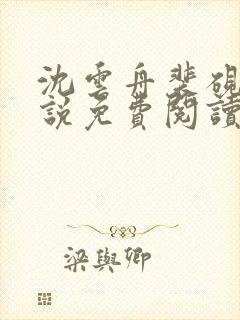 沈雲舟裴硯
說免費閱讀
梁與卿